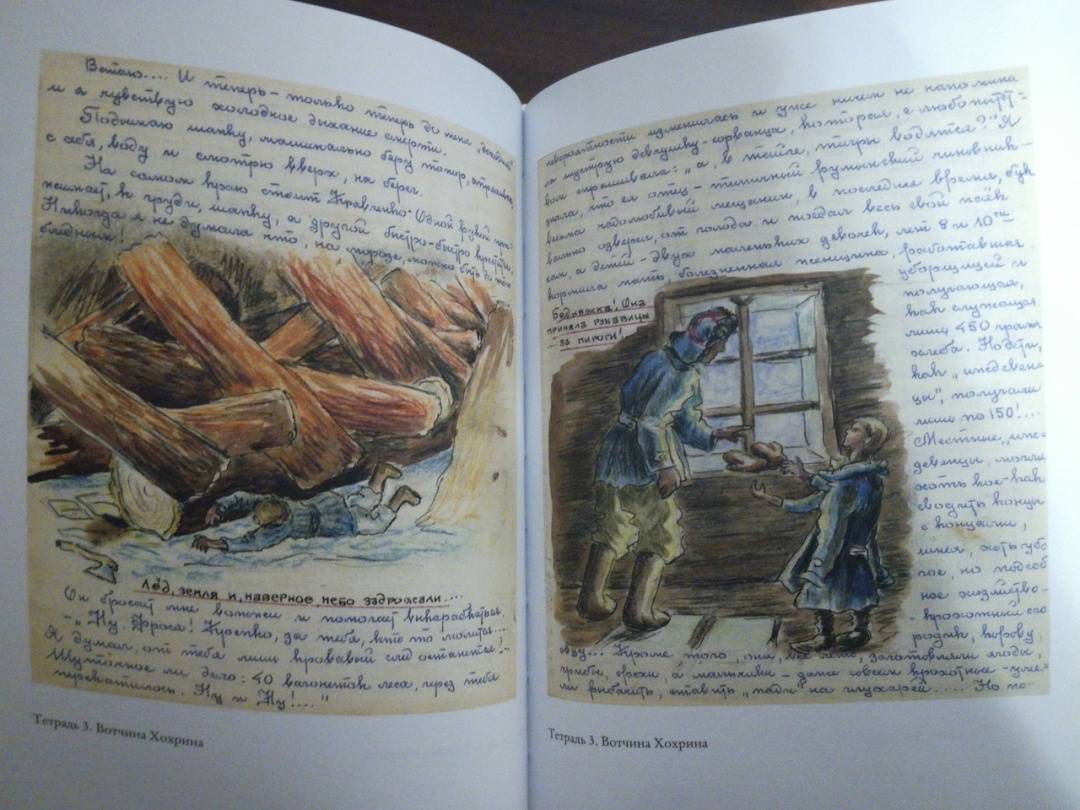 Встаю.... И теперь- только теперь до меня „доходит"
и я чувствую холодное дыхание смерти.
Поднимаю шапку, машинально беру топор, отряхиваю
с себя, воду и смотрю вверх, на берег.
На самом краю стоит Кравченко: Одной рукой при-
жимает, к груди, шапку, а другой быстро-быстро крестится.
Никогда я не думала что, на морозе, можно быть таким
бледным!
Лёд, земля и, наверное, небо задрожали....
Он бросает мне вожжи и помогает выкарабкаться.
-„Ну. Фрося! Крепко, за тебя, кто то молится....
Я думал, от тебя лишь кровавый след останется...
Шуточное ли дело: 40 вагонеток леса, через тебя
перекатилось. Ну и Ну!...."
Тетрадь 3. Вотчина Хохрина
невероятности изменилась и уже ничем не напомина
ла шуструю девчушку-сорванца, которая, с любопытст-
вом спрашивала: „а, в тайге, тигры водятся?" Я
знала, что её отец- типичный румынский чиновник-
весьма чадолюбивый мещанин, в последнее время, бук
вально озверел, от голода и поедал весь свой паёк
сам, а детей- двух маленьких девочек, лет 8 и 10ти
кормила мать болезненная женщина, работавшая
уборщицей и
получающая,
как служащая
лишь 450 грамм
хлеба. На дети,
как „иждевен-
цы", получали
лишь по 150!...
Местные „иж-
девенцы, могли
хоть кое-как
сводить концы
с концами,
имея, хоть убо
гое, но подсоб
ное хозяйство-
крохотный ого
родик, корову
Бедняжка! Она
приняла рукавицы
...за пироги!
овцу... Кроме, того, они, всё лето, заготовляли ягоды,
грибы, орехи, а мальчики- даже совсем крохотные- уме-
ли рыбачить, ставить „пади" на глухарей..... Но по-
Тетрадь 3. Вотчина Хохрина